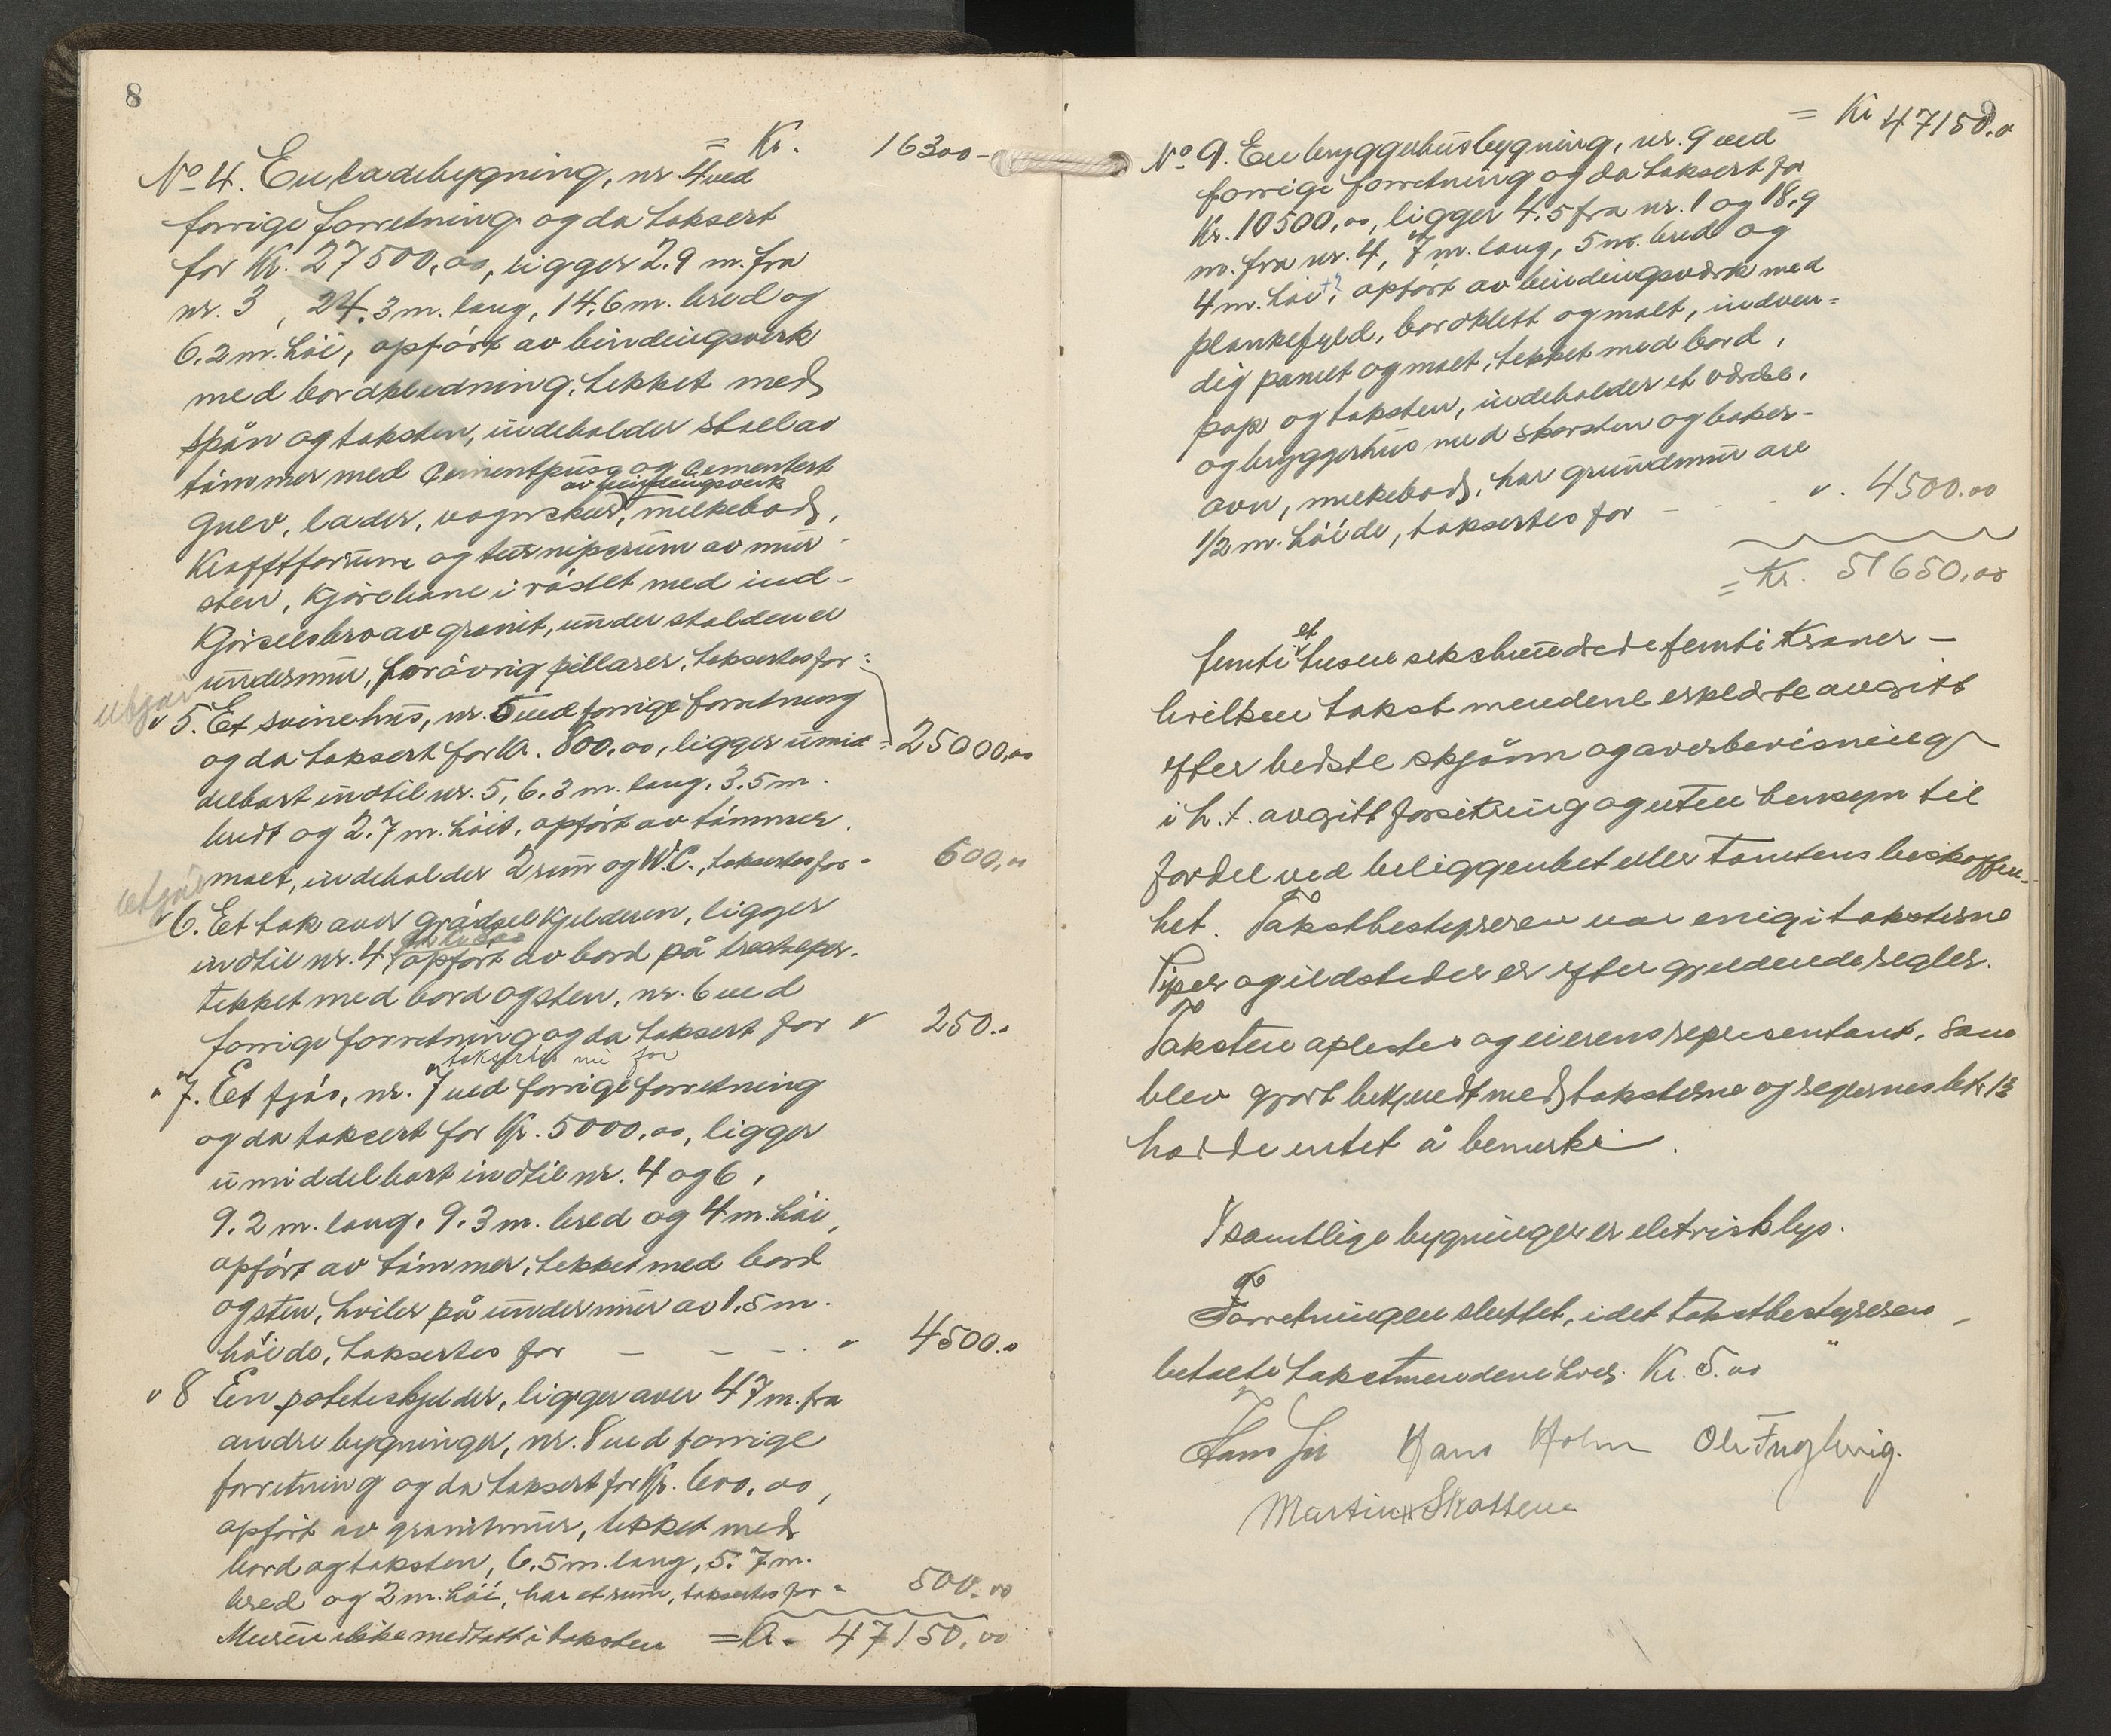 8
= Kr. 16300-
No 4. En ladebygning, nr. 4 ved
forrige forretning og da taksert
for Kr. 27500,00, ligger 2.9 m. fra
nr. 3, 24.3 m. lang, 14.6 m. bred og
6.2 m. höi, opfört av bindingsverk
med bordkledning, tekket med
spån og taksten, indeholder stall av
tömmer med cementpuss og cementert
av bindingsverk
gulv, lader, vognskur, melkebod,
Kraftforrum og turnipsrum av mur-
sten, kjörebane i röstet med ind-
kjörselsbro av granit, under stalden er
undermur, forövrig pillarer, taksertes for:
Utgår
" 5. Et svinehus, nr. 5 ved forrige forretning
og da taksert for Kr. 800,00, ligger umid- " 25000,00
delbart indtil nr. 5, 6.3 m. lang, 3.5 m.
bredt og 2.7 m. höit, opfört av tömmer,
malt, indeholder 2 rum og W.C., taksertes for " 600,00
Utgår
" 6. Et tak over gjödselkjelderen, ligger
indtil nr. 4, opfört av bord på trestolper,
tekket med bord og sten, nr. 6 ved
forrige forretning og da taksert for " 250..
taksertes nu for
" 7. Et fjös, nr. 7 ved forrige forretning
og da taksert for Kr. 5000,00, ligger
umiddelbart indtil nr. 4 og 6,
9.2 m. lang, 9.3 m. bred og 4 m. höi,
opfört av tömmer, tekket med bord
og sten, hviler på undermur av 1.5 m.
höide, taksertes for - - - . " 4500..
" 8 En poteteskjelder, ligger over 47 m. fra
andre bygninger, nr. 8 ved forrige
forretning og da taksert for Kr. 600,00,
opfört av granitmur, tekket med
bord og taksten, 6.5 m. lang, 5.7 m.
bred og 2 m. höi, har et rum, taksertes for " 500.00
Muren ikke medtatt i taksten = Kr. 47150,00
9
= Kr 47150.0
No 9. En bryggerhusbygning, nr. 9 ved
forrige forretning og da taksert for
Kr. 10500,00, ligger 4.5 fra nr. 1 og 18.9
m. fra nr. 4, 7 m. lang, 5 m. bred og
4 m. höi, opfört av bindingsverk med
plankefyld, bordklett og malt, indven-
dig panelt og malt, tekket med bord,
pap og taksten, indeholder et værelse,
og bryggerhus med skorsten og baker-
ovn, melkebod, har grundmur av
1/2 m. höide, taksertes for - - - ". 4500.00
= Kr. 51650,00
et
femti tusen sekshundrede femti Kroner -
hvilken takst mendene erklærte avgitt
efter bedste skjönn og overbevisning
i h.t. avgitt forsikring og uten hensyn til
fordel ved beliggenhet eller Tomtens beskaffen-
het. Takstbestyreren var enig i taksterne
Typer og ildsteder er efter gjeldende regler.
Taksten oplestes og eierens representant, som
blev gjort bekjendt med taksterne og reglernes litr 13
hadde intet å bemerke.
I samtlige bygninger er eletrisk lys.
Forretningen sluttet, idet takstbestyreren
betalte takstmendene hver Kr. 5.00
Hans Holm Ole Fuglevig.
Martin Skotten